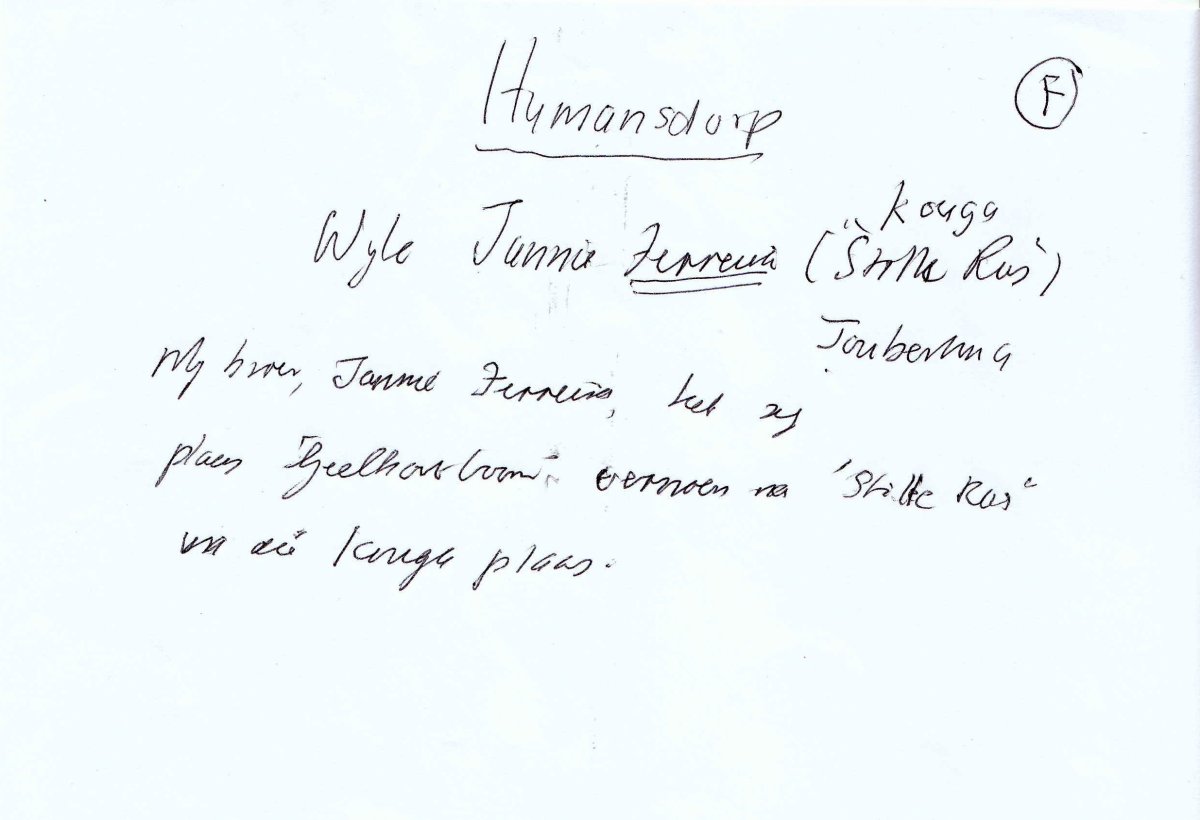 Humansdorp
F
Kouga
Wyle Jannie Ferreira ("Stille Rus")
Joubertina
My broer, Jannie Ferreira, het sy
plaas "Geelhoutboom" vernoem na "Stille Rus"
van die Kouga plaas.